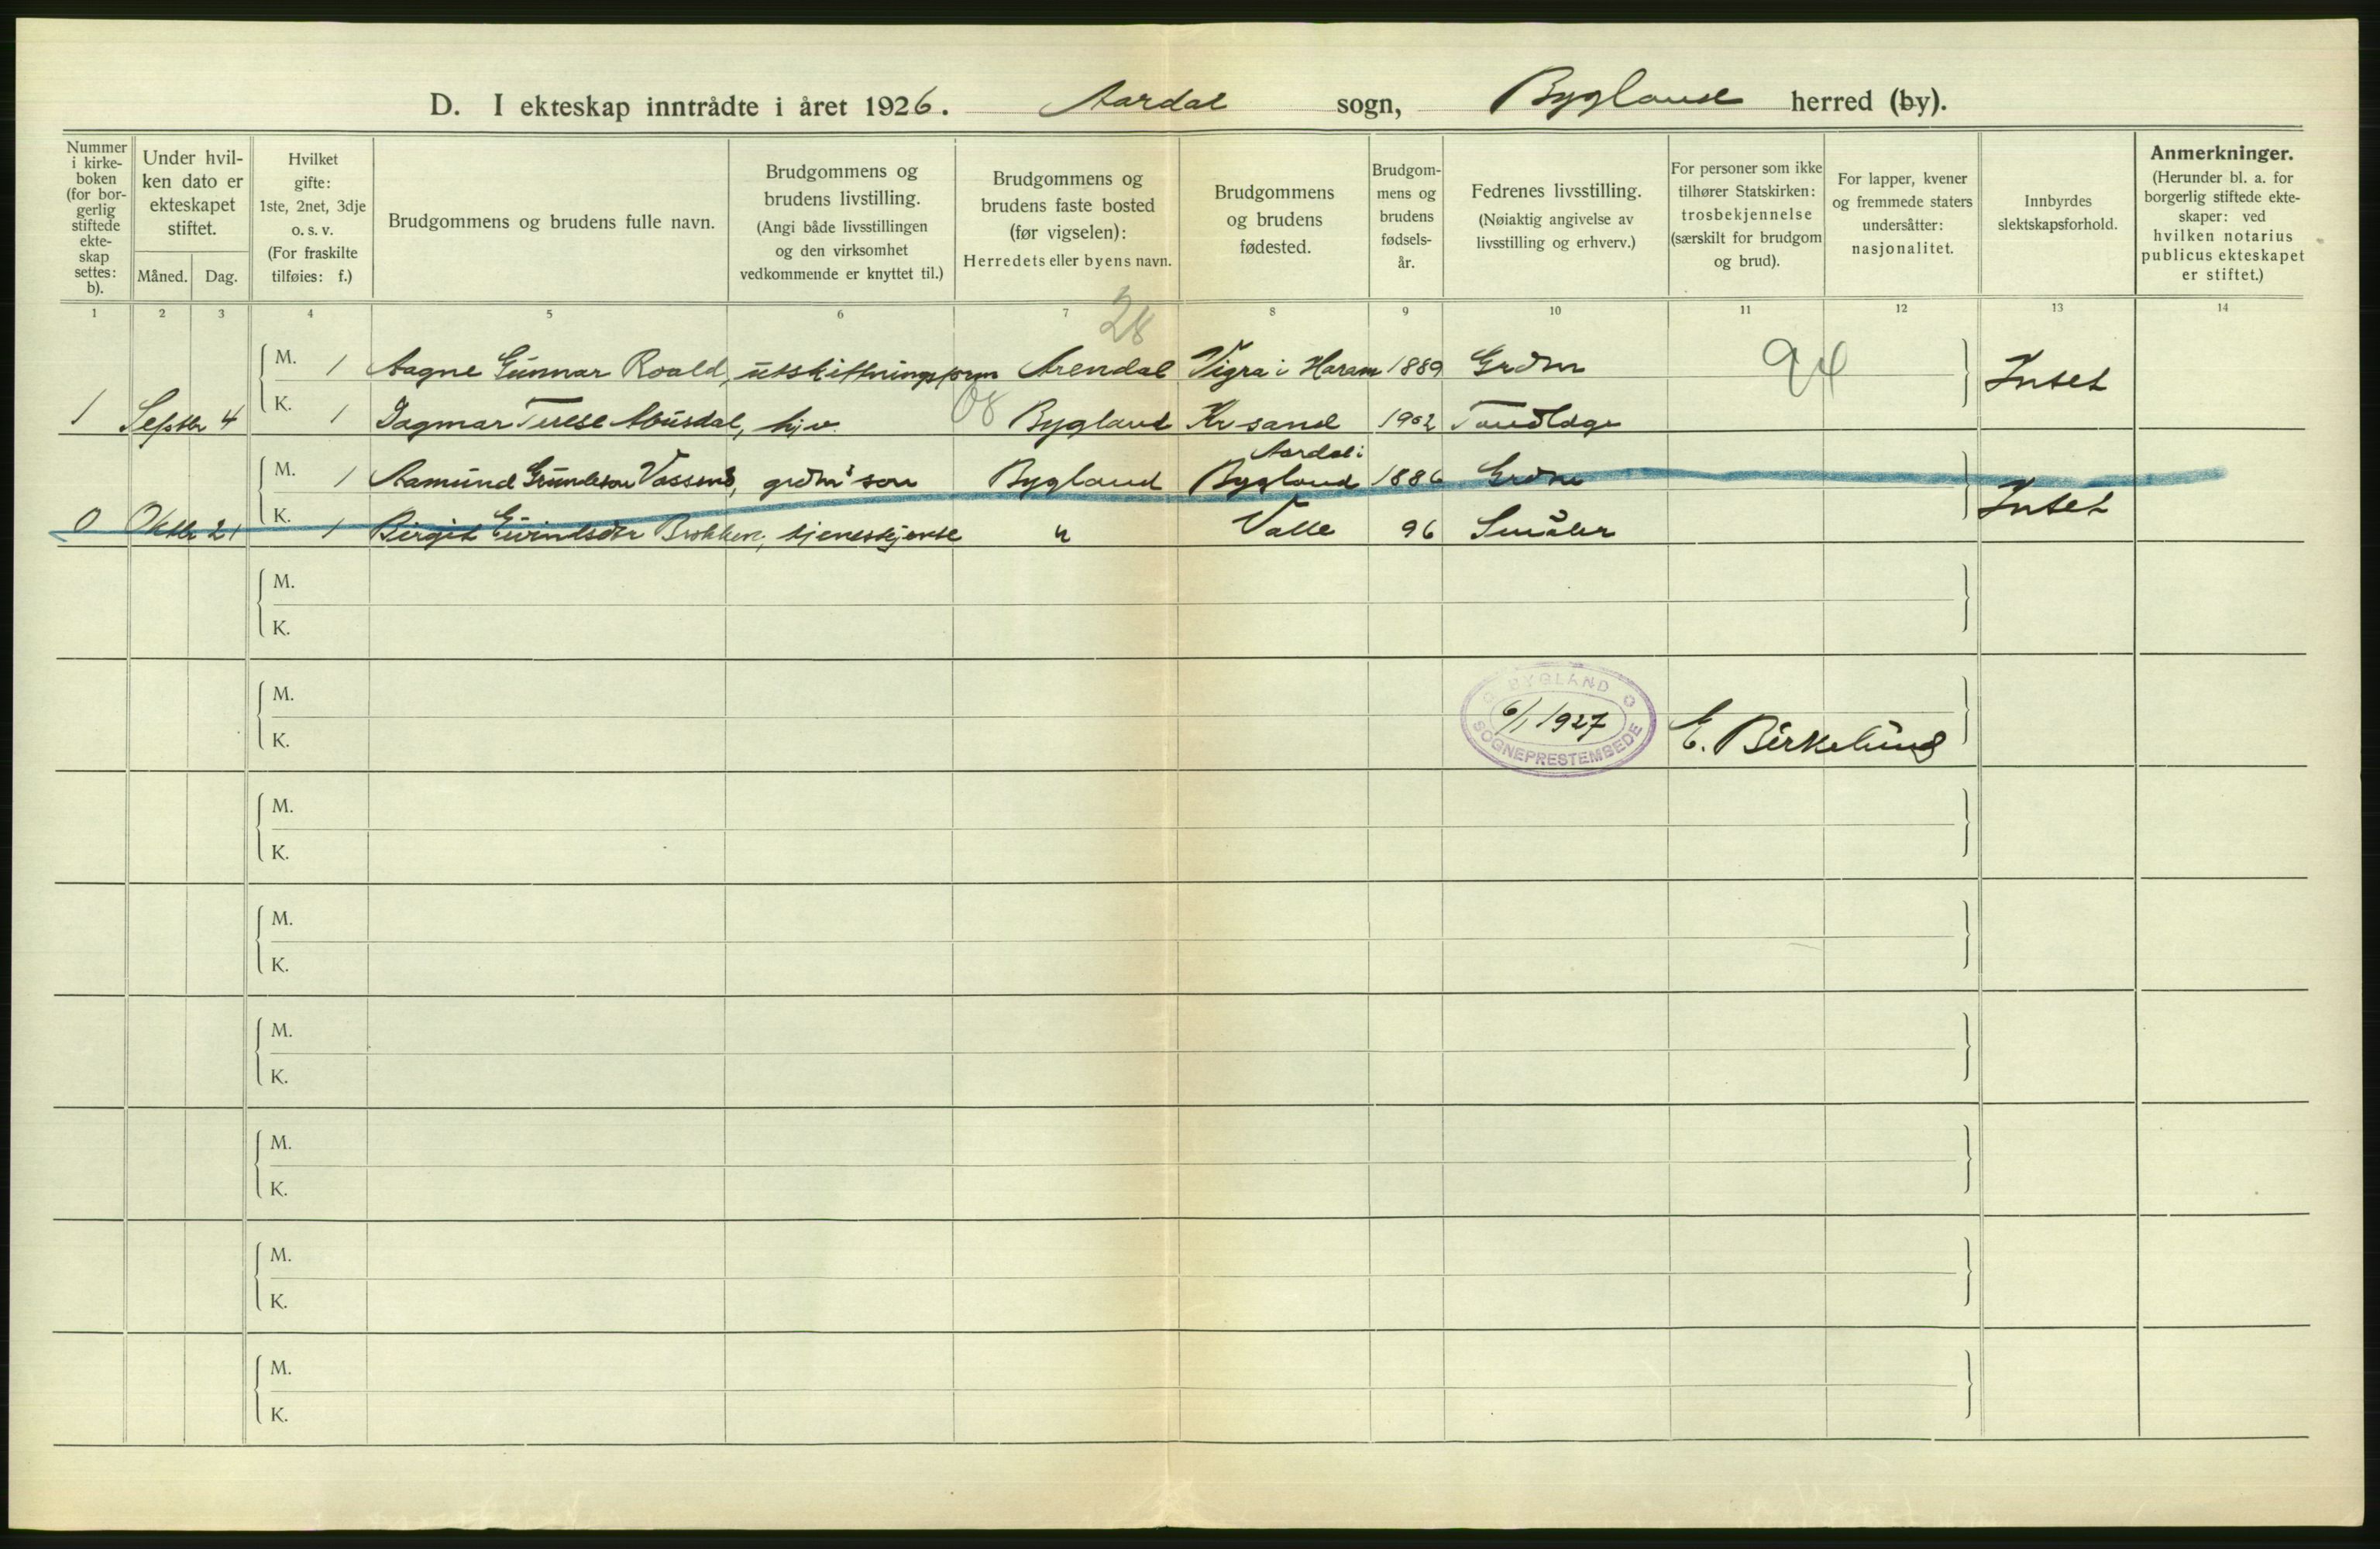 D. I ekteskap inntrådte i året 1926. Aardal sogn, Bygland herred (by).
Nummer i kirke- boken (for bor- gerlig stiftede ekte- skap settes: b).
Under hvil- ken dato er ekteskapet stiftet.
Måned. Dag.
Hvilket gifte: 1ste, 2net, 3dje o. s. v. (For fraskilte tilføies: f.)
Brudgommens og brudens fulle navn.
Brudgommens og brudens livstilling. (Angi både livsstillingen og den virksomhet vedkommende er knyttet til.)
Brudgommens og brudens faste bosted (før vigselen): Herredets eller byens navn.
Brudgommens og brudens fødested.
Brudgom- mens og brudens fødsels- år.
Fedrenes livsstilling. (Nøiaktig angivelse av livsstilling og erhverv.)
For personer som ikke tilhører Statskirken: trosbekjennelse (særskilt for brudgom og brud).
For lapper, kvener og fremmede staters undersåtter: nasjonalitet.
Innbyrdes slektskapsforhold.
Anmerkninger. (Herunder bl. a. for borgerlig stiftede ekte- skaper: ved hvilken notarius publicus ekteskapet er stiftet.)
1 2 3 4 5 6 7 8 9 10 11 12 13 14
28
M. 1 Aagne Gunnar Roald, utskiftningsform Arendal Vigra i Haram 1889 Grdm 94 Intet
1 Septbr 4 K. 1 Dagmar Terese Musdal, hjv. 08 Bygland Kr sand 1902
Aardal i
M. 1 Aamund Gundersen Vassend, grdm's søn Bygland Bygland 1886 Grdm Intet
0 Oktbr 21 K. 1 Birgit Eivindsdtr Brokken, tjenestejente " Valle 96 Småbr
M.
K.
M.
K.
BYGLAND SOGNEPRESTEMBEDE
6/1 1927
E. Birkelund
M.
K.
M.
K.
M.
K.
M.
K.
M.
K.
M.
K.